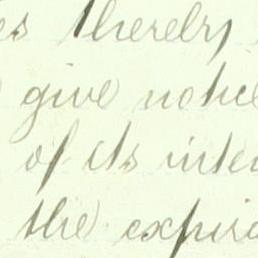 es thereby
give notice
of its inten
the expira